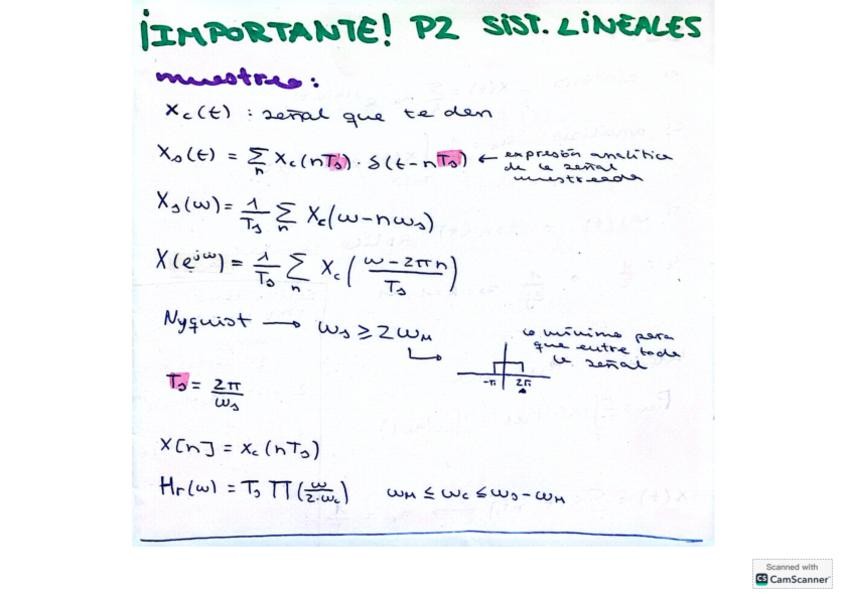 ¡IMPORTANTE! P2 SIST. LINEALES
muestreo:
Xc(t) : señal que te den
Xs(t) = Σn Xc(nTs) · δ(t-nTs) ← expresión analítica
de la señal
muestreada
Xs(ω) = 1/Ts Σn Xc(ω-nωs)
X(e^jω) = 1/Ts Σn Xc((ω-2πn)/Ts)
Nyquist → ωs ≥ 2ωM
lo mínimo para
que entre toda
la señal
-π 2π
Ts = 2π/ωs
X[n] = xc(nTs)
Hr(ω) = Ts Π(ω/2·ωc) ωM ≤ ωc ≤ ωs-ωM
Scanned with
CS CamScanner